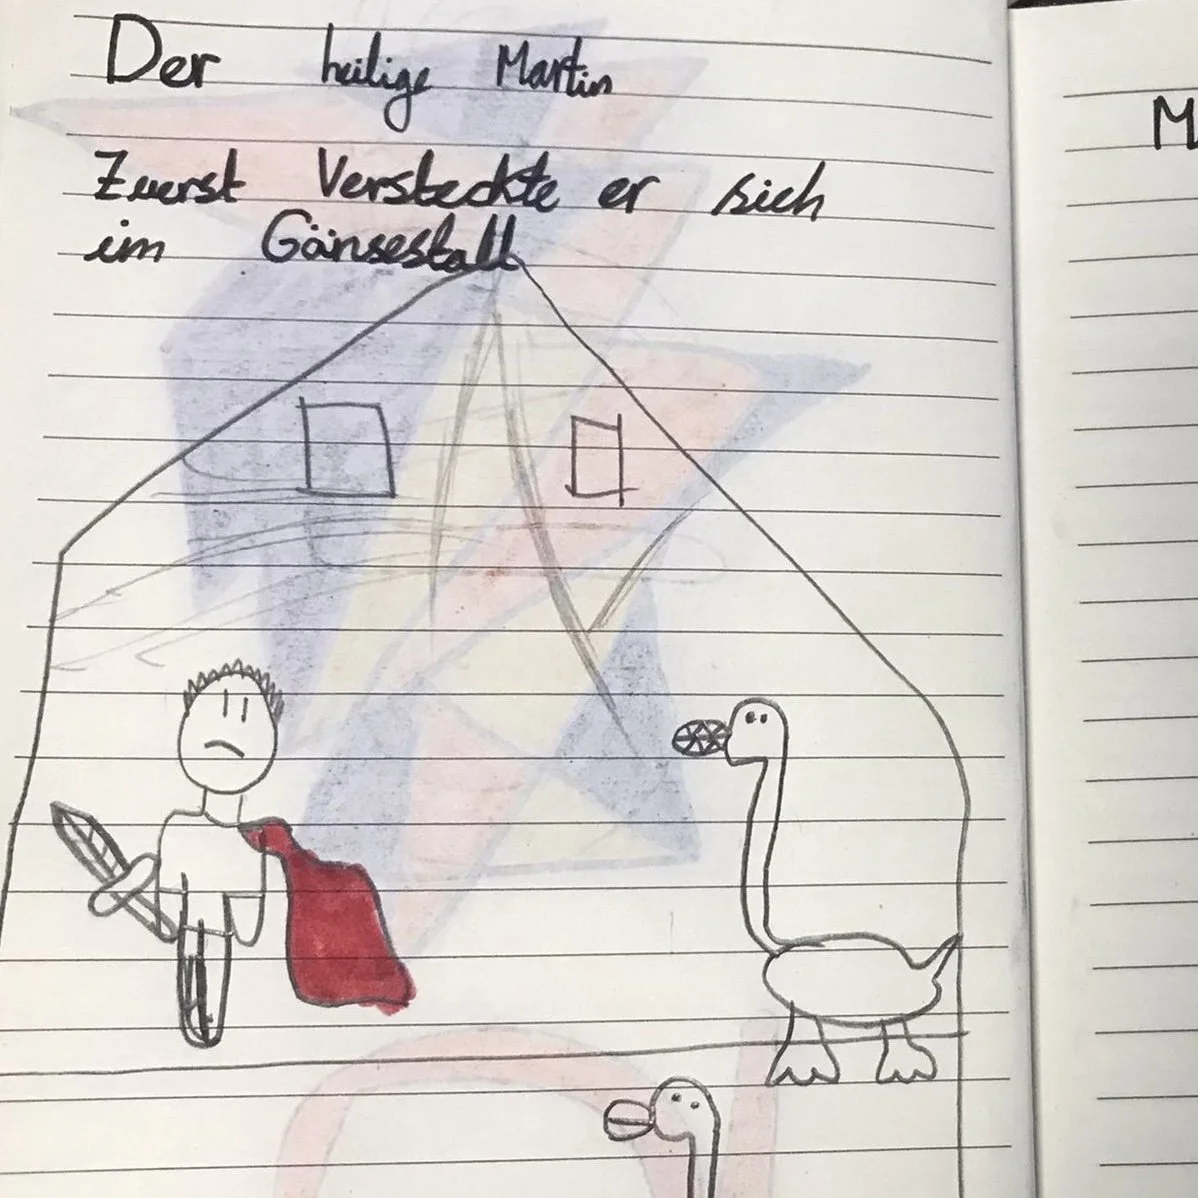 Der heilige Martin
Zuerst Versteckte er sich
im Gänsestall
M